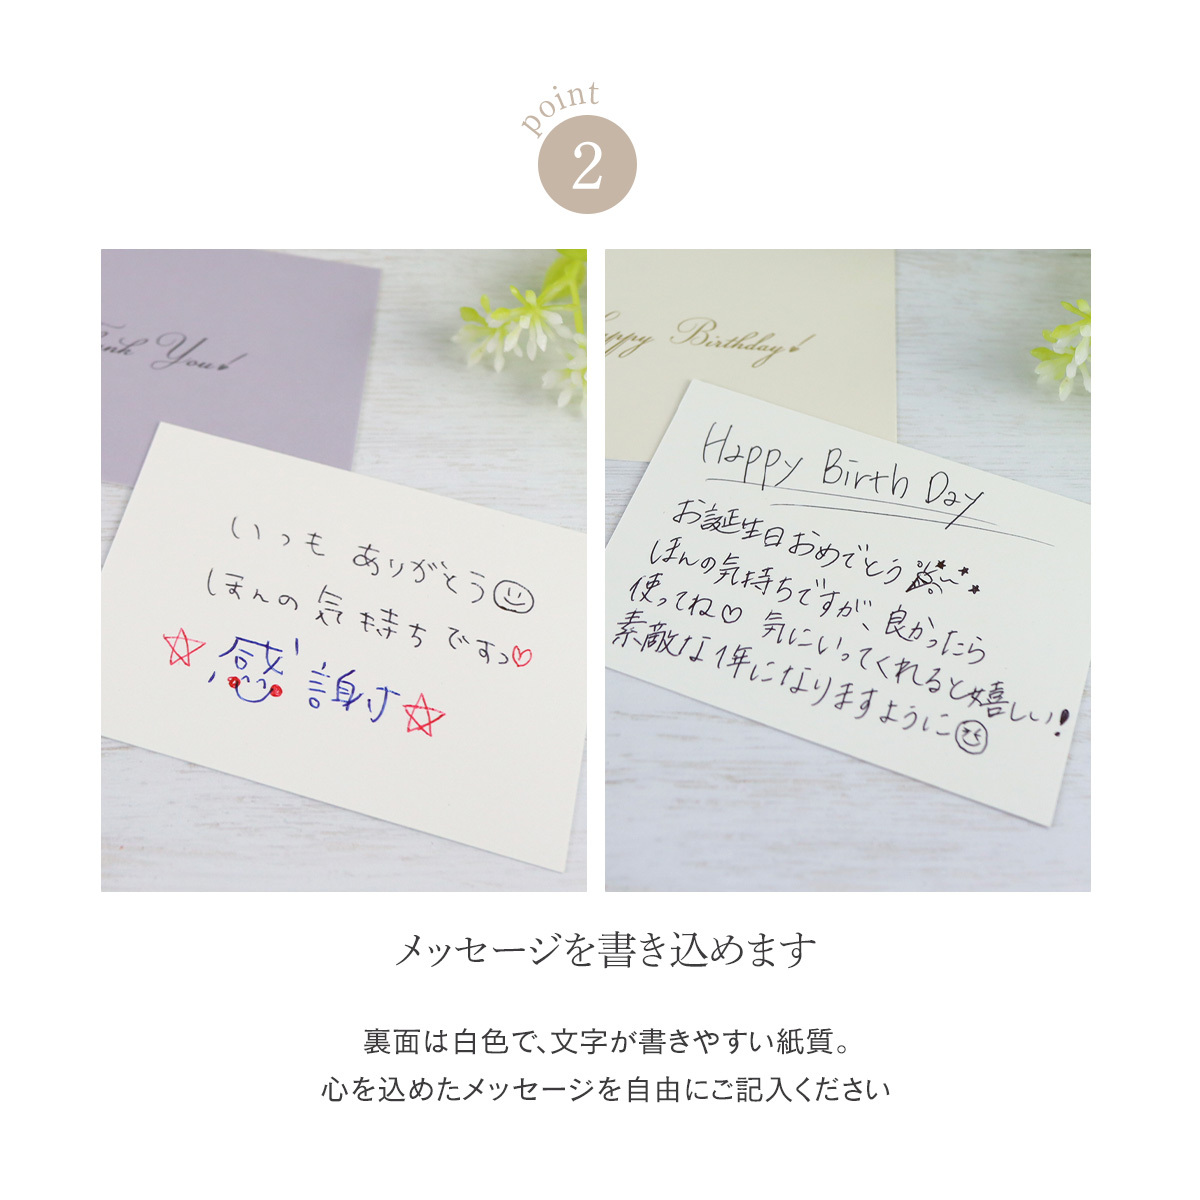 point
2
Thank You!
いつも ありがとう
ほんの 気持ち ですっ♡
☆感謝☆
Happy Birthday!
Happy Birth Day
お誕生日おめでとう
ほんの気持ちですが、良かったら
使ってね♡ 気にいってくれると嬉しい!
素敵な1年になりますように
メッセージを書き込めます
裏面は白色で、文字が書きやすい紙質。
心を込めたメッセージを自由にご記入ください